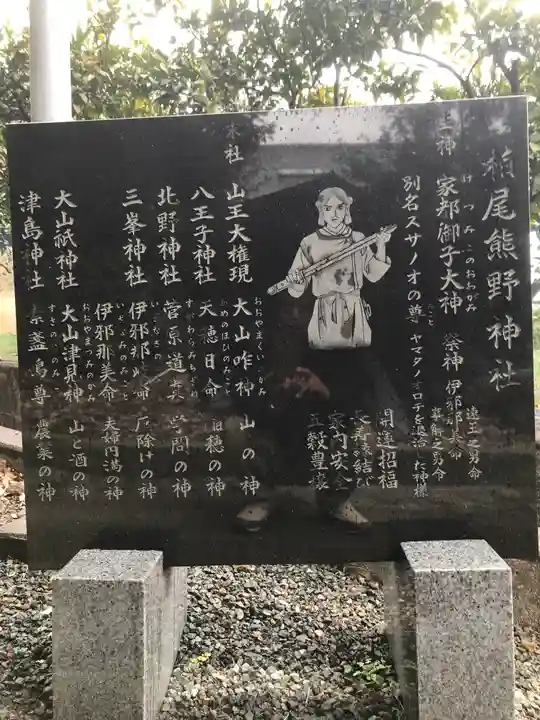 栢尾熊野神社
主神 家都御子大神
けつみこのおおかみ
祭神 伊邪那美命
速玉之男命
事解之男命
別名スサノオの尊
みこと
ヤマタノオロチを退治した神様
開運招福
長寿縁結び
家内安全
五穀豊穣
末社 山王大権現 大山咋神 山の神
おおやまくいのかみ
八王子神社 天穂日命 稲穂の神
あめのほひのみこと
北野神社 菅原道真 学問の神
すがわらみちざね
三峯神社 伊邪那岐命 厄除けの神
いざなぎの
伊邪那美命 夫婦円満の神
いざなみのみこと
大山祇神社 大山津見神 山と酒の神
おおやまつみのかみ
津島神社 素盞嗚尊 農業の神
すさのおのみこと